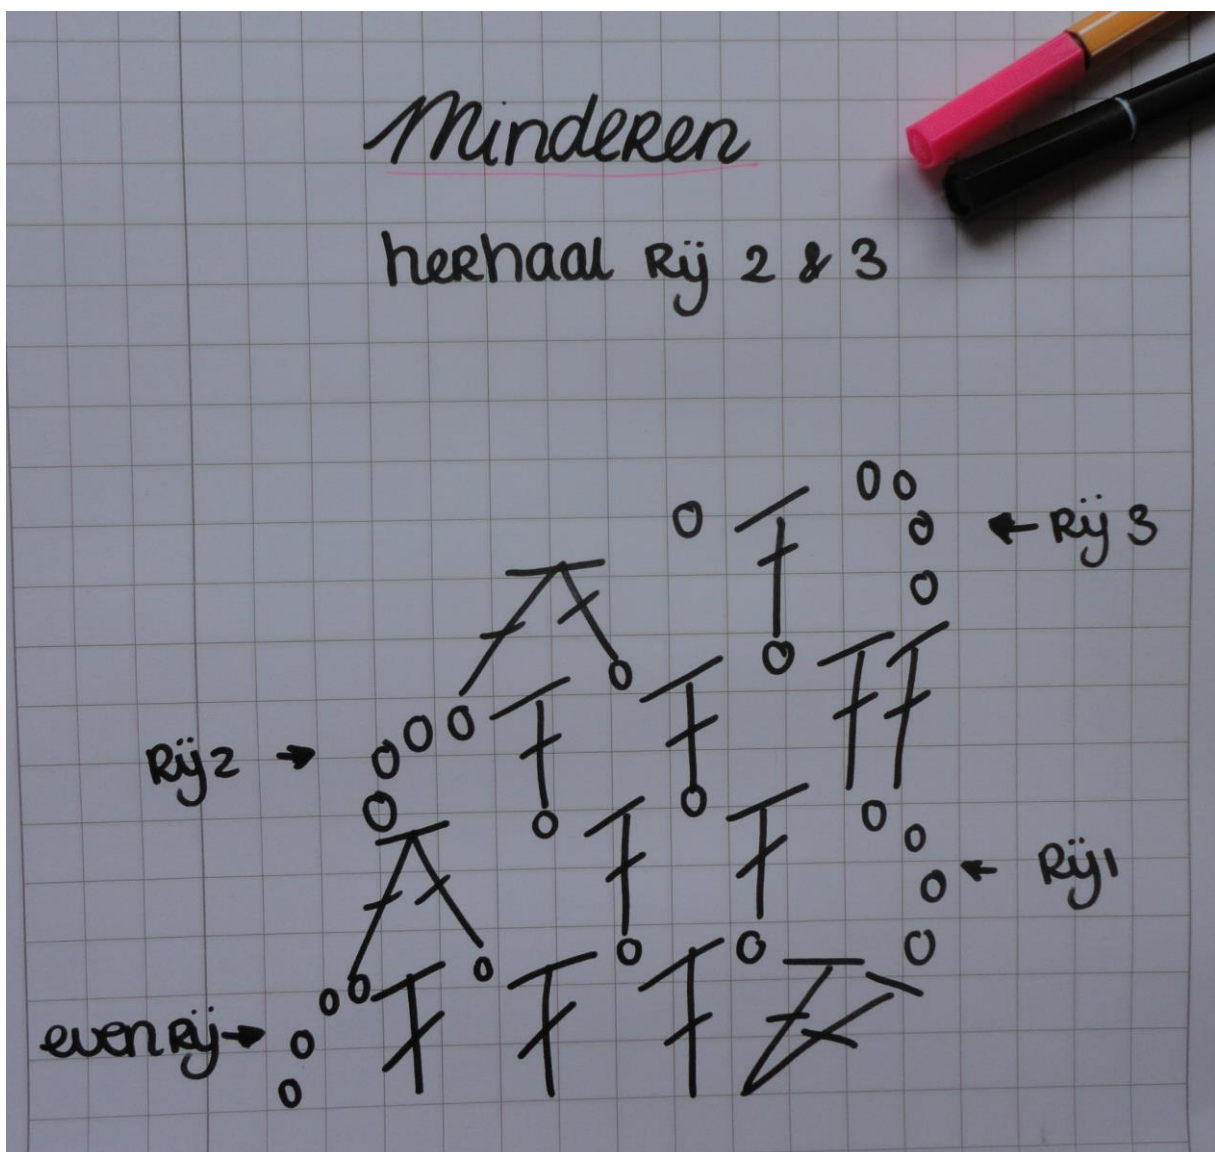 Minderen
herhaal Rij 2 & 3
← Rij 3
Rij 2 →
← Rij 1
even Rij →